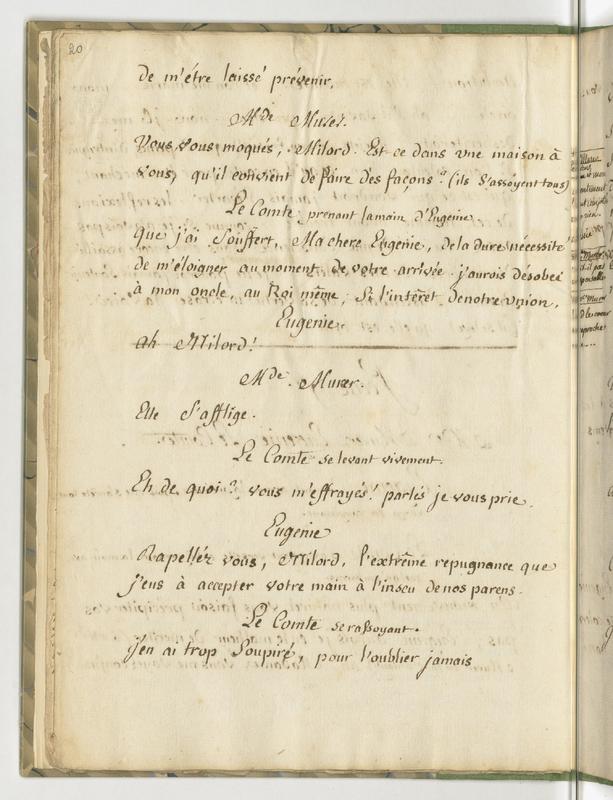 20
de m'étre laissé prévenir.
Mde Murer.
Vous vous moqués, Milord. Est ce dans vne maison à
vous, qu'il convient de faire des façons? (ils s'assoyent tous)
Le Comte prenant la main d'Eugenie.
Que j'ai souffert, Ma chere Eugenie, de la dure nécessité
de m'éloigner au moment de votre arrivée. j'aurois désobei
à mon oncle, au Roi même, si l'intérêt de notre vnion.
Eugenie.
Ah Milord!
Mde. Murer.
Elle s'afflige.
Le Comte se levant vivement.
Eh de quoi? vous m'effrayés! parlés je vous prie.
Eugenie
Rapelléz vous, Milord, l'extrême repugnance que
j'eus à accepter votre main à l'insçu de nos parens.
Le Comte se rassoyant.
J'en ai trop soupiré, pour l'oublier jamais